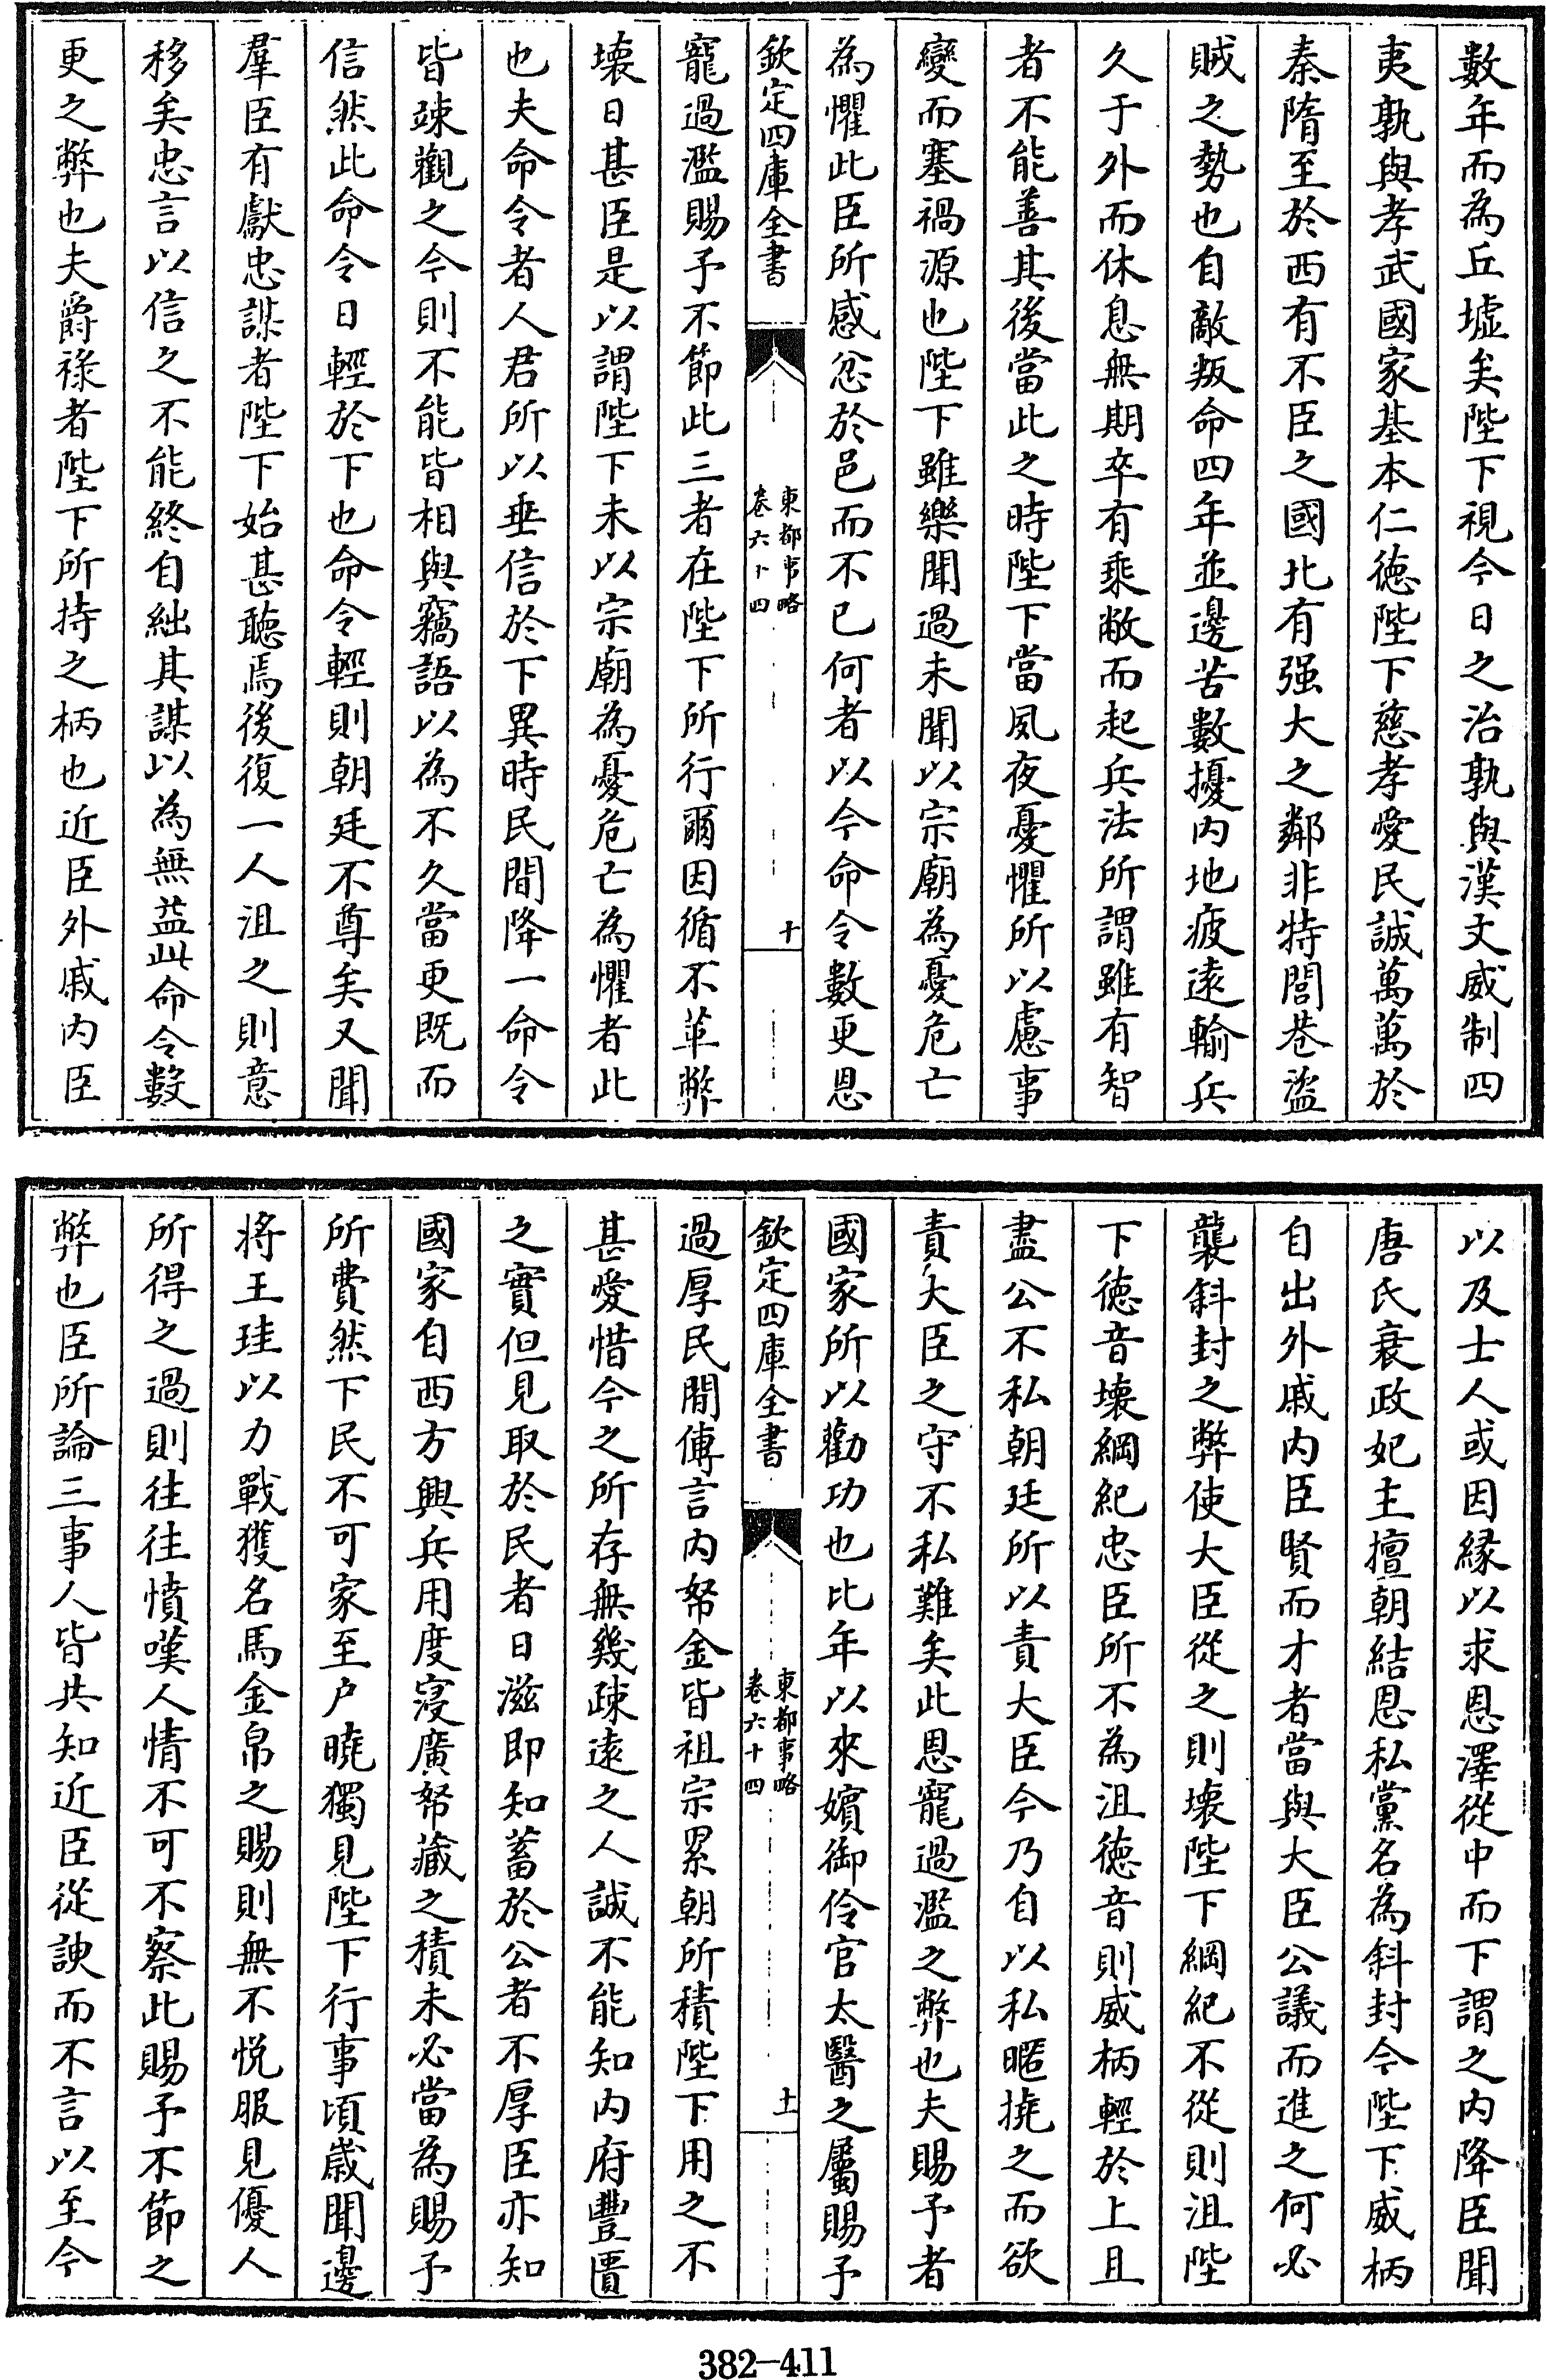 數年而為丘墟矣陛下視今日之治孰與漢文威制四
夷孰與孝武國家基本仁徳陛下慈孝愛民誠萬萬於
秦隋至於西有不臣之國北有强大之鄰非特閭巷盜
賊之勢也自敵叛命四年並邊苦數擾内地疲逺輸兵
久于外而休息無期卒有乘敝而起兵法所謂雖有智
者不能善其後當此之時陛下當夙夜憂懼所以慮事
變而塞禍源也陛下雖樂聞過未聞以宗廟為憂危亡
為懼此臣所感忿於邑而不已何者以今命令數更恩
欽定四庫全書
東都事略
卷六十四
十
寵過濫賜予不節此三者在陛下所行爾因循不革弊
壊日甚臣是以謂陛下未以宗廟為憂危亡為懼者此
也夫命令者人君所以垂信於下異時民間降一命令
皆竦觀之今則不能皆相與竊語以為不久當更既而
信然此命令日輕於下也命令輕則朝廷不尊矣又聞
羣臣有獻忠謀者陛下始甚聽焉後復一人沮之則意
移矣忠言以信之不能終自絀其謀以為無益此命令數
更之弊也夫爵祿者陛下所持之柄也近臣外戚内臣
以及士人或因縁以求恩澤從中而下謂之内降臣聞
唐氏衰政妃主擅朝結恩私黨名為斜封今陛下威柄
自出外戚内臣賢而才者當與大臣公議而進之何必
襲斜封之弊使大臣從之則壊陛下綱紀不從則沮陛
下徳音壊綱紀忠臣所不為沮徳音則威柄輕於上且
盡公不私朝廷所以責大臣今乃自以私暱撓之而欲
責大臣之守不私難矣此恩寵過濫之弊也夫賜予者
國家所以勸功也比年以來嬪御伶官太醫之屬賜予
欽定四庫全書
東都事略
卷六十四
十一
過厚民間傳言内帑金皆祖宗累朝所積陛下用之不
甚愛惜今之所存無幾疎逺之人誠不能知内府豐匱
之實但見取於民者日滋即知蓄於公者不厚臣亦知
國家自西方興兵用度寖廣帑藏之積未必當為賜予
所費然下民不可家至户曉獨見陛下行事頃歲聞邊
將王珪以力戰獲名馬金帛之賜則無不悅服見優人
所得之過則往往憤嘆人情不可不察此賜予不節之
弊也臣所論三事人皆共知近臣從諛而不言以至今
382-411